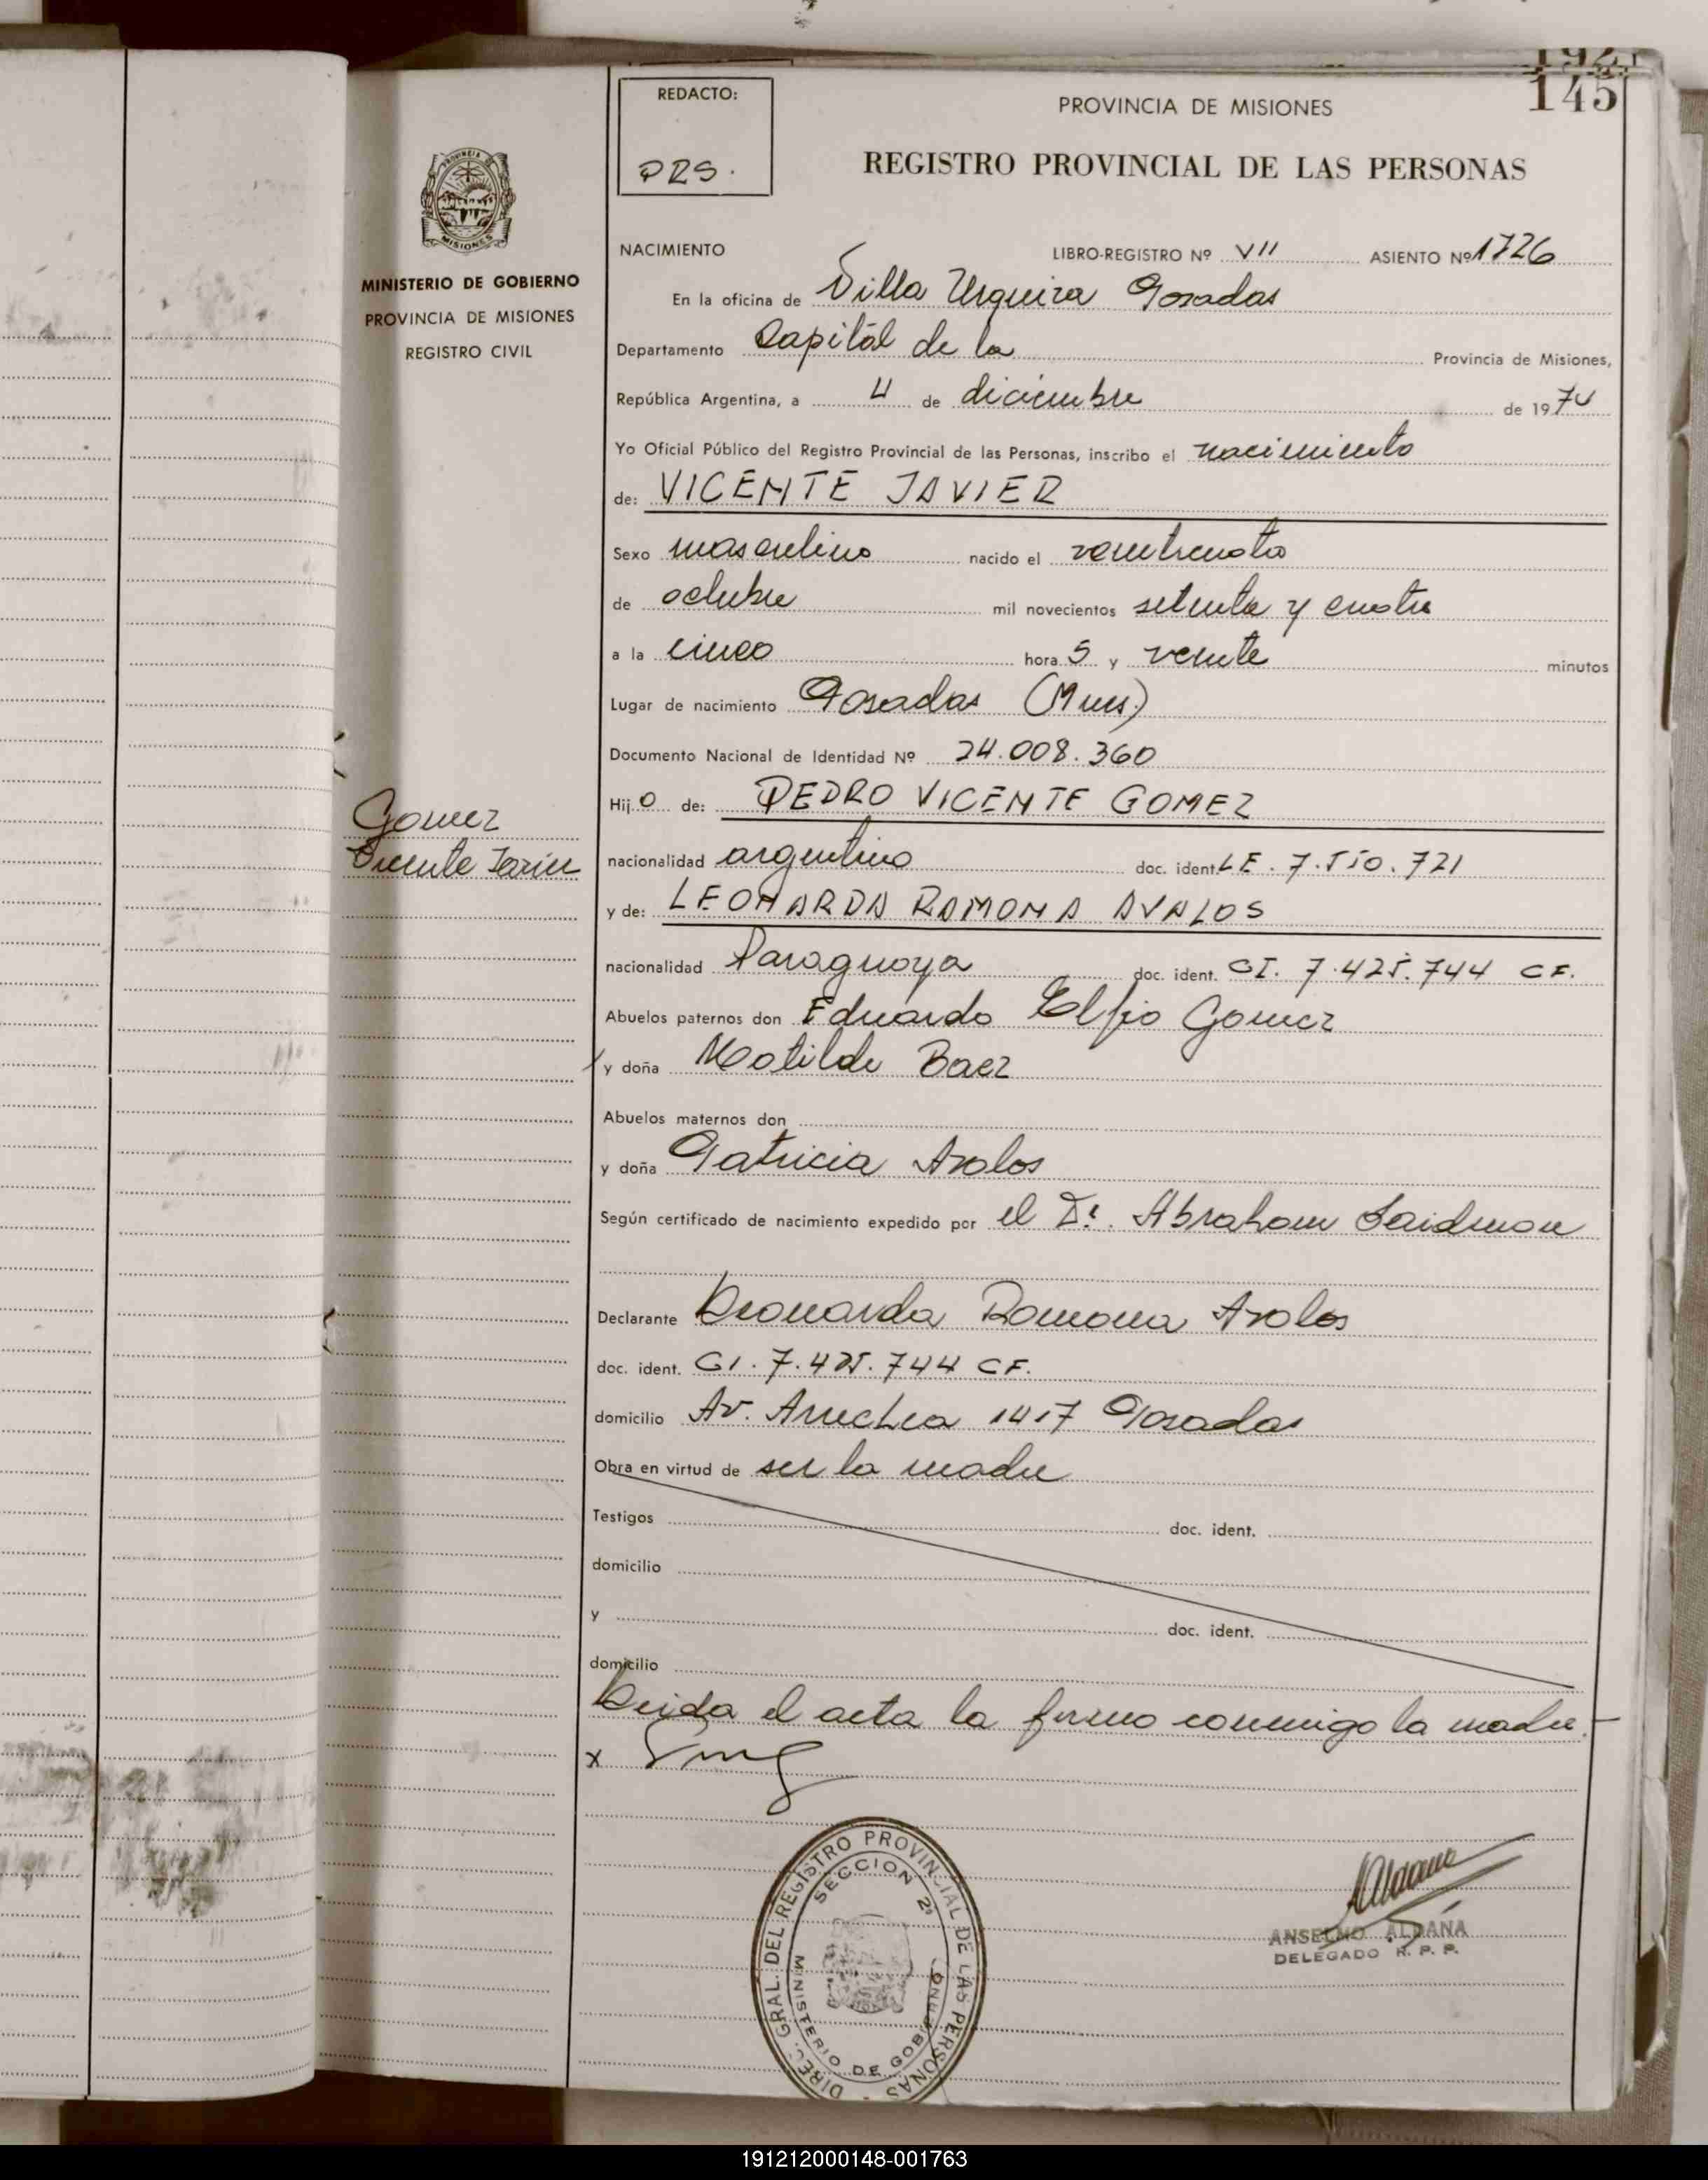 192
145
REDACTO:
PRS.
PROVINCIA DE MISIONES
REGISTRO PROVINCIAL DE LAS PERSONAS
MISIONES
MINISTERIO DE GOBIERNO
PROVINCIA DE MISIONES
REGISTRO CIVIL
NACIMIENTO LIBRO-REGISTRO Nº VII ASIENTO Nº 1726
En la oficina de Villa Urquiza Posadas
Departamento Capitál de la Provincia de Misiones,
República Argentina, a 4 de diciembre de 1974
Yo Oficial Público del Registro Provincial de las Personas, inscribo el nacimiento
de: VICENTE JAVIER
Sexo masculino nacido el
de octubre mil novecientos setenta y cuatro
a la cinco hora 5 y veinte minutos
Lugar de nacimiento Posadas (Mnes.)
Documento Nacional de Identidad Nº 24.008.360
Hijo de: PEDRO VICENTE GOMEZ
Gomez
Vicente Javier
nacionalidad argentino doc. ident. LE. 7.550.721
y de: LEONARDA RAMONA AVALOS
nacionalidad Paraguaya doc. ident. CI. 7.425.744 CF.
Abuelos paternos don Eduardo Elfio Gomez
y doña Matilde Baez
Abuelos maternos don
y doña Patricia Avalos
Según certificado de nacimiento expedido por el Dr. Abraham Saidman
Declarante Leonarda Ramona Avalos
doc. ident. CI. 7.425.744 CF.
domicilio Av. Arrechea 1417 Posadas
Obra en virtud de ser la madre
Testigos doc. ident.
domicilio
y doc. ident.
domicilio
Leida el acta la firmo conmigo la madre.-
x
DIREC. GRAL. DEL REGISTRO PROVINCIAL DE LAS PERSONAS -
SECCION 2ª
MINISTERIO DE GOBIERNO
Aldana
ANSELMO ALDANA
DELEGADO R. P. P.
191212000148-001763